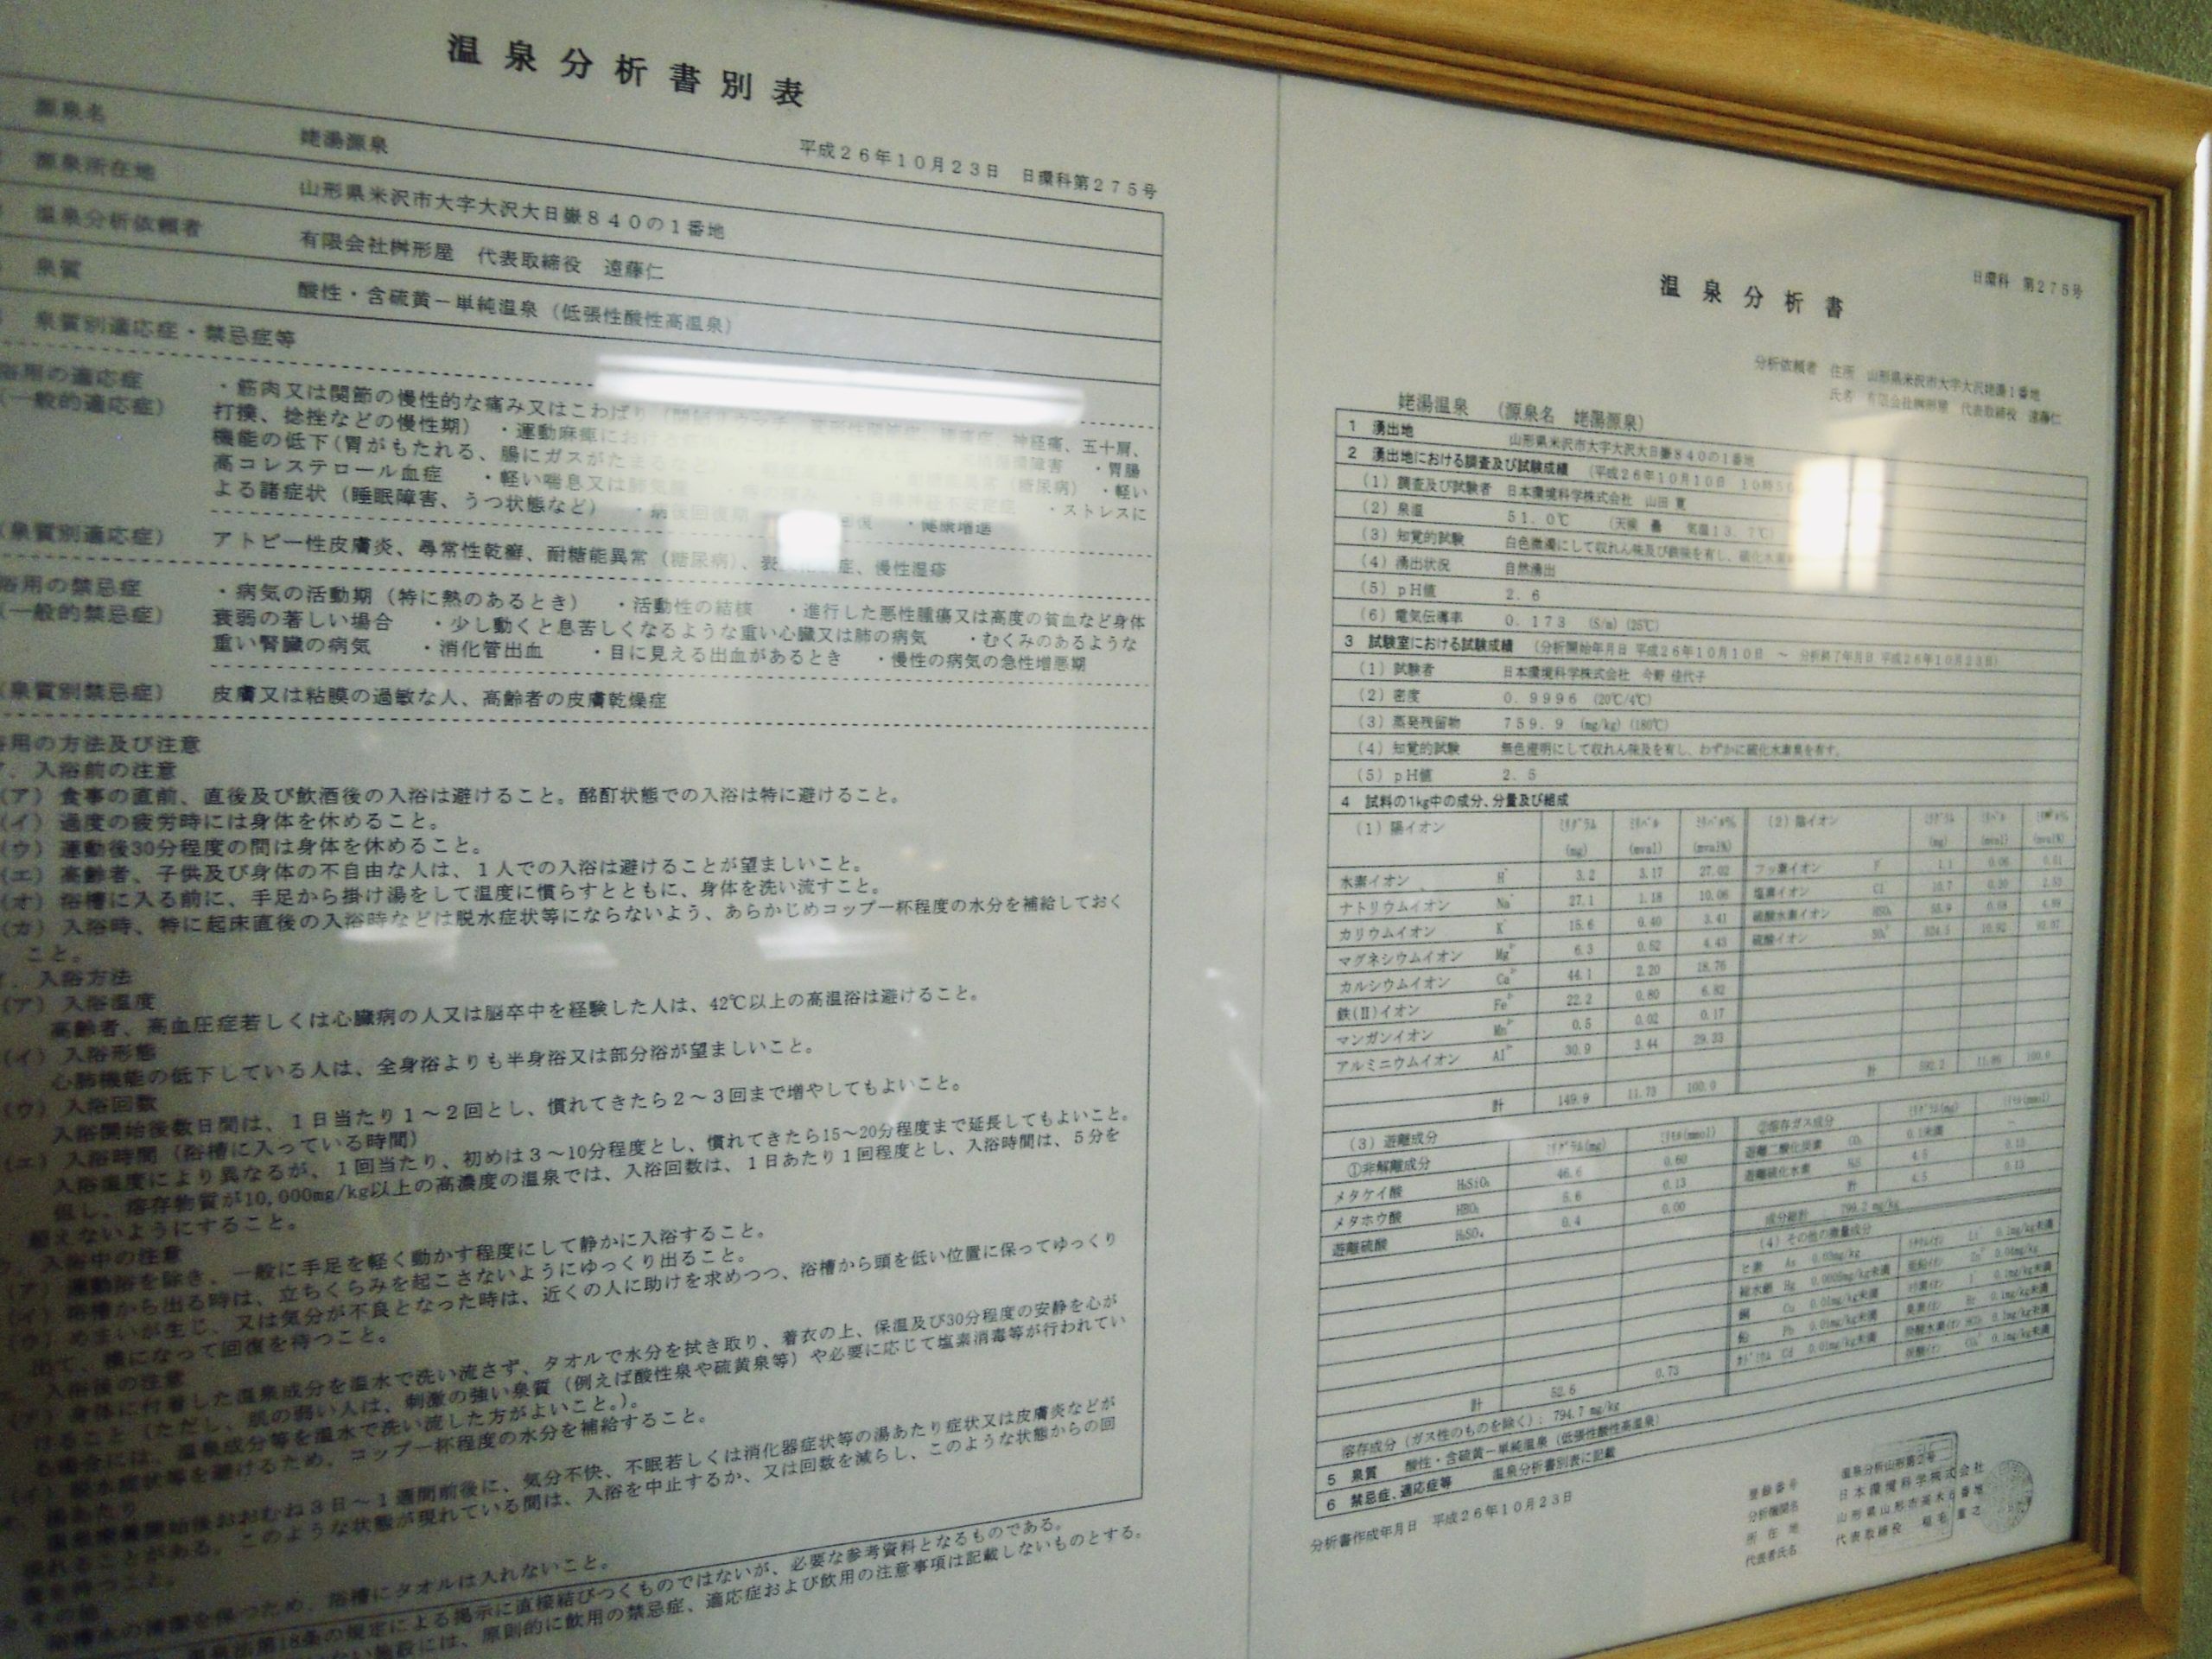 温泉分析書別表
平成26年10月23日 日環科第275号
源泉名 姥湯源泉
源泉所在地 山形県米沢市大字大沢大日嶽840の1番地
温泉分析依頼者 有限会社桝形屋 代表取締役 遠藤仁
泉質 酸性・含硫黄－単純温泉（低張性酸性高温泉）
泉質別適応症・禁忌症等
浴用の適応症
（一般的適応症）
・筋肉又は関節の慢性的な痛み又はこわばり 神経痛、五十肩、
打撲、捻挫などの慢性期） ・運動麻痺における ・胃腸
機能の低下（胃がもたれる、腸にガスがたまる （糖尿病） ・軽い
高コレステロール血症 ・軽い喘息又は肺気腫 ・ストレスに
よる諸症状（睡眠障害、うつ状態など） ・病後回復期 ・健康増進
（泉質別適応症） アトピー性皮膚炎、尋常性乾癬、耐糖能異常（糖尿病）、 症、慢性湿疹
浴用の禁忌症
（一般的禁忌症）
・病気の活動期（特に熱のあるとき） ・活動性の結核 ・進行した悪性腫瘍又は高度の貧血など身体
衰弱の著しい場合 ・少し動くと息苦しくなるような重い心臓又は肺の病気 ・むくみのあるような
重い腎臓の病気 ・消化管出血 ・目に見える出血があるとき ・慢性の病気の急性増悪期
（泉質別禁忌症） 皮膚又は粘膜の過敏な人、高齢者の皮膚乾燥症
浴用の方法及び注意
入浴前の注意
（ア）食事の直前、直後及び飲酒後の入浴は避けること。酩酊状態での入浴は特に避けること。
（イ）過度の疲労時には身体を休めること。
（ウ）運動後30分程度の間は身体を休めること。
（エ）高齢者、子供及び身体の不自由な人は、1人での入浴は避けることが望ましいこと。
（オ）浴槽に入る前に、手足から掛け湯をして温度に慣らすとともに、身体を洗い流すこと。
（カ）入浴時、特に起床直後の入浴時などは脱水症状等にならないよう、あらかじめコップ一杯程度の水分を補給しておく
こと。
入浴方法
（ア）入浴温度
高齢者、高血圧症若しくは心臓病の人又は脳卒中を経験した人は、42℃以上の高温浴は避けること。
（イ）入浴形態
心肺機能の低下している人は、全身浴よりも半身浴又は部分浴が望ましいこと。
（ウ）入浴回数
入浴開始後数日間は、1日当たり1～2回とし、慣れてきたら2～3回まで増やしてもよいこと。
（エ）入浴時間（浴槽に入っている時間）
入浴温度により異なるが、1回当たり、初めは3～10分程度とし、慣れてきたら15～20分程度まで延長してもよいこと。
但し、溶存物質が10,000mg/kg以上の高濃度の温泉では、入浴回数は、1日あたり1回程度とし、入浴時間は、5分を
超えないようにすること。
入浴中の注意
（ア）運動浴を除き、一般に手足を軽く動かす程度にして静かに入浴すること。
（イ）浴槽から出る時は、立ちくらみを起こさないようにゆっくり出ること。
（ウ）めまいが生じ、又は気分が不良となった時は、近くの人に助けを求めつつ、浴槽から頭を低い位置に保ってゆっくり
出て、横になって回復を待つこと。
入浴後の注意
（ア）身体に付着した温泉成分を温水で洗い流さず、タオルで水分を拭き取り、着衣の上、保温及び30分程度の安静を心が
けること（ただし、肌の弱い人は、刺激の強い泉質（例えば酸性泉や硫黄泉等）や必要に応じて塩素消毒等が行われてい
る場合には、温泉成分等を温水で洗い流した方がよいこと。）。
（イ）脱水症状等を避けるため、コップ一杯程度の水分を補給すること。
湯あたり
温泉療養開始後おおむね3日～1週間前後に、気分不快、不眠若しくは消化器症状等の湯あたり症状又は皮膚炎などが
現れることがある。このような状態が現れている間は、入浴を中止するか、又は回数を減らし、このような状態からの回
復を待つこと。
その他
浴槽水の清潔を保つため、浴槽にタオルは入れないこと。
温泉法第18条の規定による掲示に直接結びつくものではないが、必要な参考資料となるものである。
施設には、原則的に飲用の禁忌症、適応症および飲用の注意事項は記載しないものとする。
日環科 第275号
温泉分析書
分析依頼者 住所 山形県米沢市大字大沢姥湯1番地
氏名 有限会社桝形屋 代表取締役 遠藤仁
姥湯温泉 （源泉名 姥湯源泉）
1 湧出地 山形県米沢市大字大沢大日嶽840の1番地
2 湧出地における調査及び試験成績 （平成26年10月10日 10時
（1）調査及び試験者 日本環境科学株式会社 山田
（2）泉温 51.0℃ （天候 曇 気温13.7℃）
（3）知覚的試験 白色微濁にして収れん味及び鉄味を有し、硫化水素
（4）湧出状況 自然湧出
（5）pH値 2.6
（6）電気伝導率 0.173 (S/m)(25℃)
3 試験室における試験成績 （分析開始年月日 平成26年10月10日 ～ 分析終了年月日 平成26年10月23日）
（1）試験者 日本環境科学株式会社 今野 佳代子
（2）密度 0.9996 (20℃/4℃)
（3）蒸発残留物 759.9 (mg/kg)(180℃)
（4）知覚的試験 無色澄明にして収れん味及を有し、わずかに硫化水素臭を有す。
（5）pH値 2.5
4 試料の1kg中の成分、分量及び組成
（1）陽イオン ﾐﾘｸﾞﾗﾑ (mg) ﾐﾘﾊﾞﾙ (mval) ﾐﾘﾊﾞﾙ% (mval%) （2）陰イオン ﾐﾘｸﾞﾗﾑ (mg) ﾐﾘﾊﾞﾙ (mval) ﾐﾘﾊﾞﾙ% (mval%)
水素イオン H⁺ 3.2 3.17 27.02 フッ素イオン F 1.1 0.06 0.51
ナトリウムイオン Na⁺ 27.1 1.18 10.06 塩素イオン Cl 10.7 0.30 2.53
カリウムイオン K⁺ 15.6 0.40 3.41 硫酸水素イオン HSO₄ 4.89
マグネシウムイオン Mg²⁺ 6.3 0.52 4.43 硫酸イオン SO₄²⁻ 524.5 10.92
カルシウムイオン Ca²⁺ 44.1 2.20 18.76
鉄(II)イオン Fe²⁺ 22.2 0.80 6.82
マンガンイオン Mn²⁺ 0.5 0.02 0.17
アルミニウムイオン Al³⁺ 30.9 3.44 29.33
計 149.9 11.73 100.0 計 100.0
（3）遊離成分 ﾐﾘｸﾞﾗﾑ(mg) ﾐﾘﾓﾙ(mmol) ②溶存ガス成分 ﾐﾘｸﾞﾗﾑ(mg) ﾐﾘﾓﾙ(mmol)
①非解離成分 遊離二酸化炭素 CO₂ 0.1未満 －
メタケイ酸 H₂SiO₃ 46.6 0.60 遊離硫化水素 H₂S 4.5 0.13
メタホウ酸 HBO₂ 5.6 0.13 計 4.5 0.13
遊離硫酸 H₂SO₄ 0.4 0.00 成分総計 799.2 mg/kg
（4）その他の微量成分
ヒ素 As 0.03mg/kg
総水銀 Hg 0.0005mg/kg未満
銅 Cu 0.01mg/kg未満
鉛 Pb 0.01mg/kg未満
ｶﾄﾞﾐｳﾑ Cd 0.01mg/kg未満
計 52.6 0.73
溶存成分（ガス性のものを除く）：794.7 mg/kg
5 泉質 酸性・含硫黄－単純温泉（低張性酸性高温泉）
6 禁忌症、適応症等 温泉分析書別表に記載
分析書作成年月日 平成26年10月23日
登録番号 温泉分析山形第2号
分析機関名 日本環境科学株式会社
所在地 山形県山形市高木6番地
代表者氏名 代表取締役